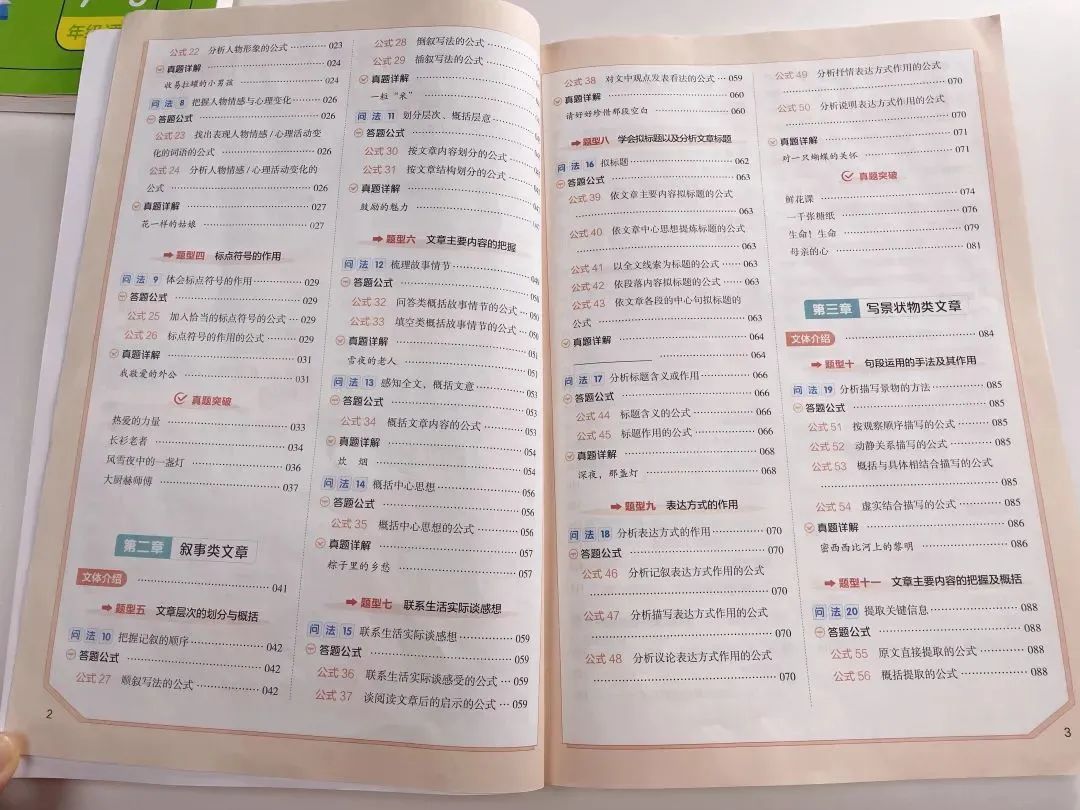 年级
公式 22 分析人物形象的公式 ………… 023
真题详解 ………… 024
收易拉罐的小男孩 ………… 024
问法 8 把握人物情感与心理变化 ………… 026
答题公式 ………… 026
公式 23 找出表现人物情感/心理活动变
化的词语的公式 ………… 026
公式 24 分析人物情感/心理活动变化的
公式 ………… 026
真题详解 ………… 027
花一样的姑娘 ………… 027
题型四 标点符号的作用
问法 9 体会标点符号的作用 ………… 029
答题公式 ………… 029
公式 25 加入恰当的标点符号的公式 … 029
公式 26 标点符号的作用的公式 … 029
真题详解 ………… 031
我敬爱的外公 ………… 031
真题突破
热爱的力量 ………… 033
长衫老者 ………… 034
风雪夜中的一盏灯 ………… 036
大厨赫师傅 ………… 037
第二章 叙事类文章
文体介绍 ………… 041
题型五 文章层次的划分与概括
问法 10 把握记叙的顺序 ………… 042
答题公式 ………… 042
公式 27 顺叙写法的公式 ………… 042
2
公式 28 倒叙写法的公式 …………
公式 29 插叙写法的公式 …………
真题详解 …………
一粒“米” …………
问法 11 划分层次、概括层意 …………
答题公式 …………
公式 30 按文章内容划分的公式 …………
公式 31 按文章结构划分的公式 …………
真题详解 …………
鼓励的魅力 …………
题型六 文章主要内容的把握
问法 12 梳理故事情节 …………
答题公式 …………
公式 32 问答类概括故事情节的公式 … 050
公式 33 填空类概括故事情节的公式 … 050
真题详解 ………… 051
雪夜的老人 ………… 051
问法 13 感知全文，概括文意 ………… 053
答题公式 ………… 053
公式 34 概括文章内容的公式 ………… 053
真题详解 ………… 054
炊 烟 ………… 054
问法 14 概括中心思想 ………… 056
答题公式 ………… 056
公式 35 概括中心思想的公式 ………… 056
真题详解 ………… 057
粽子里的乡愁 ………… 057
题型七 联系生活实际谈感想
问法 15 联系生活实际谈感想 ………… 059
答题公式 ………… 059
公式 36 联系生活实际谈感受的公式 … 059
公式 37 谈阅读文章后的启示的公式 … 059
公式 38 对文中观点发表看法的公式 … 059
真题详解 ………… 060
请好好珍惜那段空白 ………… 060
题型八 学会拟标题以及分析文章标题
问法 16 拟标题 ………… 062
答题公式 ………… 063
公式 39 依文章主要内容拟标题的公式
………… 063
公式 40 依文章中心思想提炼标题的公式
………… 063
公式 41 以全文线索为标题的公式 … 063
公式 42 依段落内容拟标题的公式 … 063
公式 43 依文章各段的中心句拟标题的
公式 ………… 063
真题详解 ………… 064
________ ………… 064
问法 17 分析标题含义或作用 ………… 066
答题公式 ………… 066
公式 44 标题含义的公式 ………… 066
公式 45 标题作用的公式 ………… 066
真题详解 ………… 068
深夜，那盏灯 ………… 068
题型九 表达方式的作用
问法 18 分析表达方式的作用 ………… 070
答题公式 ………… 070
公式 46 分析记叙表达方式作用的公式
………… 070
公式 47 分析描写表达方式作用的公式
………… 070
公式 48 分析议论表达方式作用的公式
………… 070
公式 49 分析抒情表达方式作用的公式
………… 070
公式 50 分析说明表达方式作用的公式
………… 070
真题详解 ………… 071
对一只蝴蝶的关怀 ………… 071
真题突破
鲜花课 ………… 074
一千张糖纸 ………… 076
生命！生命 ………… 079
母亲的心 ………… 081
第三章 写景状物类文章
文体介绍 ………… 084
题型十 句段运用的手法及其作用
问法 19 分析描写景物的方法 ………… 085
答题公式 ………… 085
公式 51 按观察顺序描写的公式 ………… 085
公式 52 动静关系描写的公式 ………… 085
公式 53 概括与具体相结合描写的公式
………… 085
公式 54 虚实结合描写的公式 ………… 085
真题详解 ………… 086
密西西比河上的黎明 ………… 086
题型十一 文章主要内容的把握及概括
问法 20 提取关键信息 ………… 088
答题公式 ………… 088
公式 55 原文直接提取的公式 ………… 088
公式 56 概括提取的公式 ………… 088
3